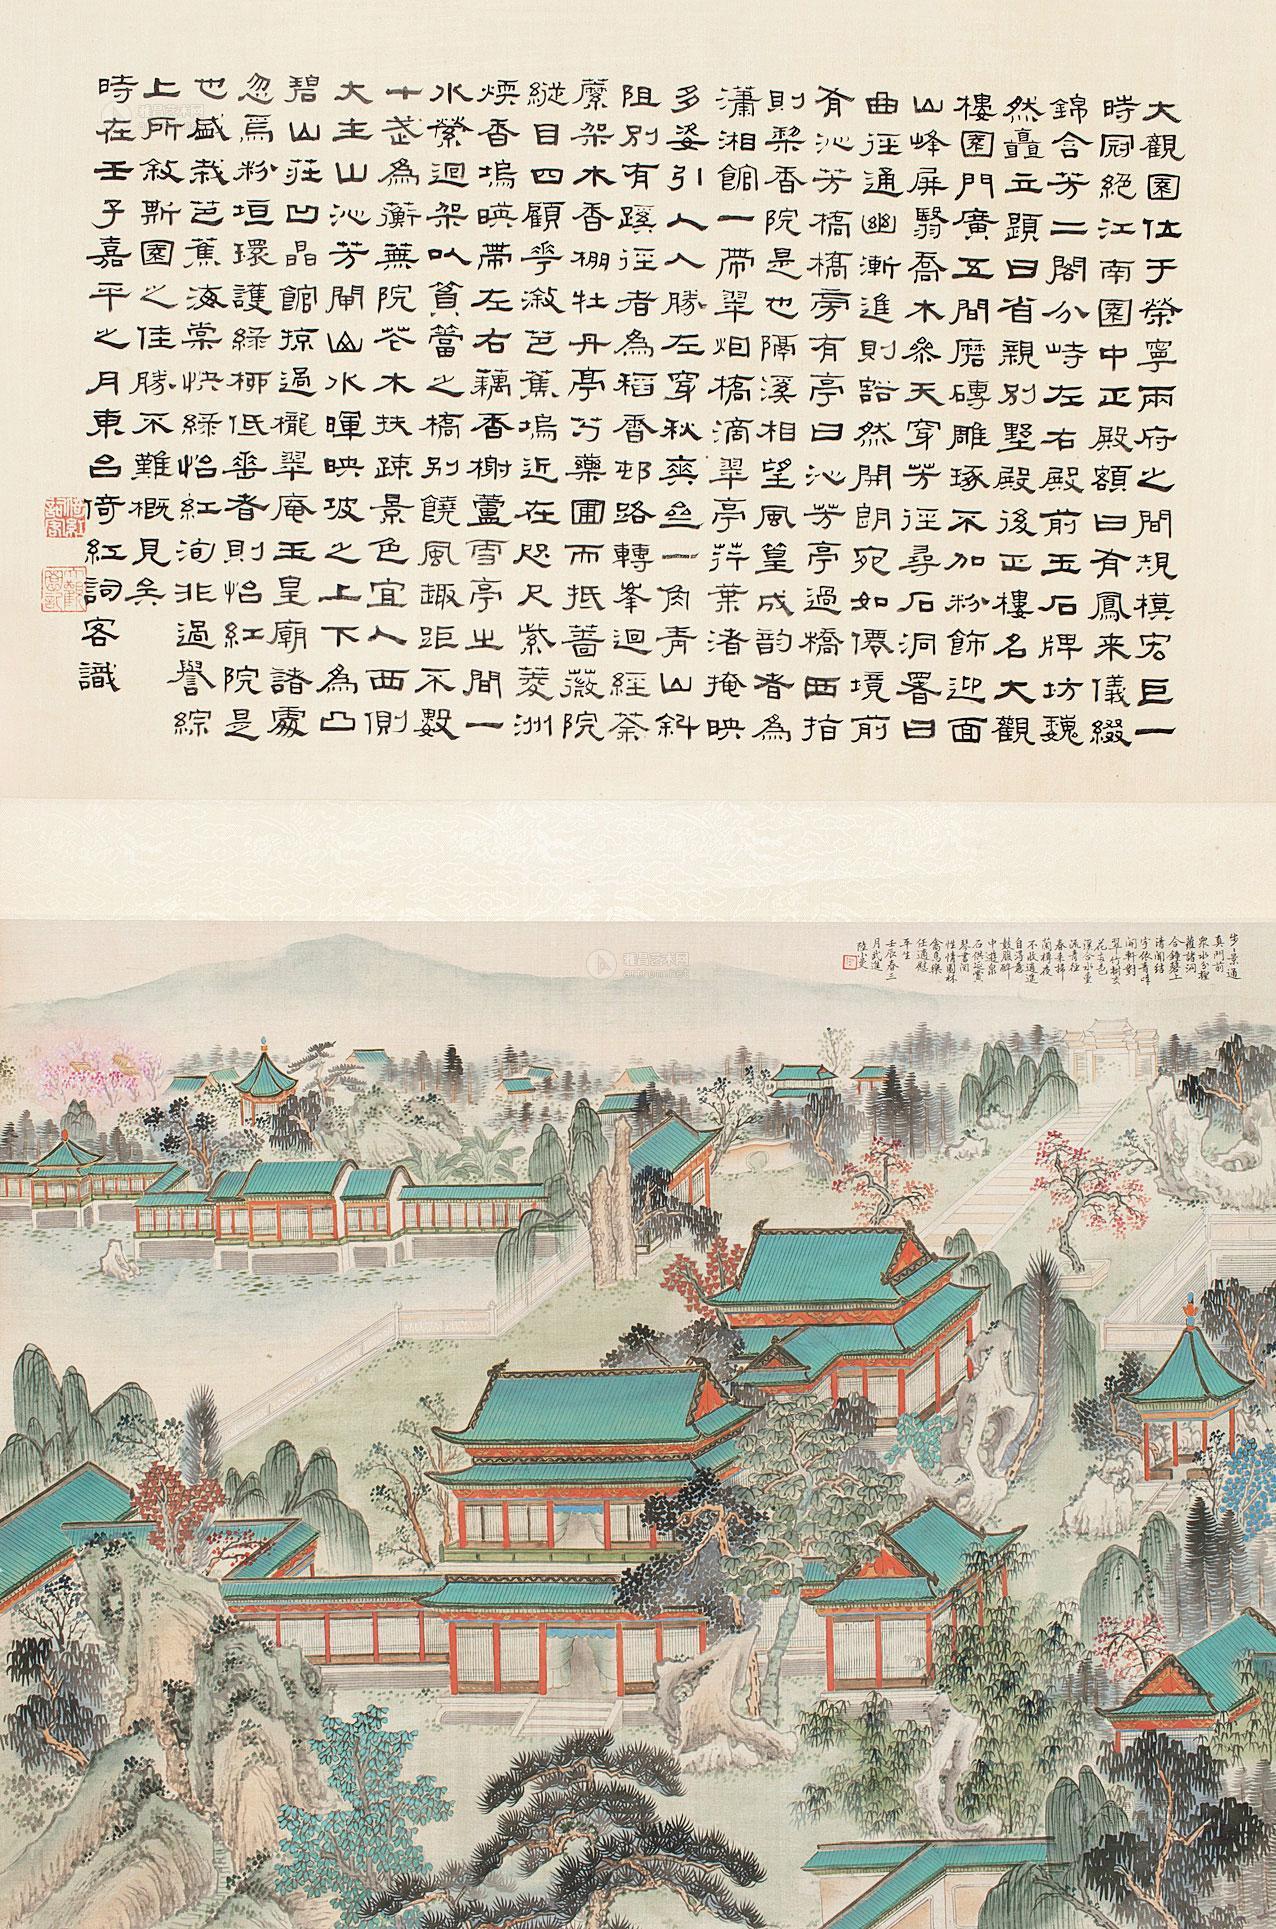 大觀園位于榮寧兩府之間規模宏巨一
時冠絕江南園中正殿額曰有鳳来儀綴
錦含芳二閣分峙左右殿前玉石牌坊巍
然矗立顥曰省親別墅殿後正樓名大觀
樓園門廣五間磨磚雕琢不加粉飾迎面
山峰屏翳喬木参天穿芳徑尋石洞署曰
曲徑通幽漸進則豁然開朗宛如僊境前
有沁芳橋橋旁有亭曰沁芳亭過橋西指
則梨香院是也隔溪相望風篁成韵者為
瀟湘館一帶翠烟橋滴翠亭荇葉渚掩映
多姿引人入勝左穿秋爽 一角青山斜
阻別有蹊徑者為稻香邨路轉峯迴經荼
縻架木香棚牡丹亭芍藥圃而抵薔薇院
縱目四顧芩溆芭蕉塢近在咫尺紫菱洲
煗香塢暎帶左右藕香榭蘆雪亭㞢間一
水縈迴架以篔簹之橋別饒風趣距不數
十武為蘅蕪院芲木扶疎景色宜人西側
大主山沁芳閘山水暉映坡之上下為凸
碧山莊凹晶館掠過櫳翠庵玉皇廟諸處
忽焉粉垣環護綠柳低垂者則怡紅院是
也盛栽芭蕉海棠怏綠怡紅洵非過譽綜
上所敘斯園之佳勝不難概見矣
時在壬子嘉平之月東呂倚紅詞客識
步景通
真門前
泉水分程
蘿諸洞
合鍾磬上
清聞結
宇依青嶂
開軒對
翠竹樹交
花古色
溪合水重
流青徑
春来掃
蘭樽夜
不收逍遥
自得意
鼓腹醉
中遊泉
石供延賞
琴書悅
性情園林
禽鳥樂
任適慰
平生
壬辰春三
月武進
陸小曼